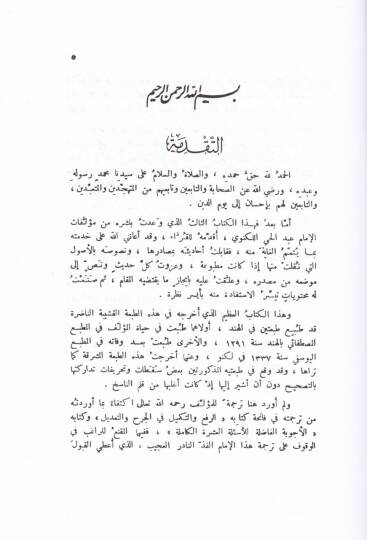 ٥
بسم الله الرحمن الرحيم
التَّقْدِمَة
الحمدُ لله حقَّ حمدِه ، والصلاةُ والسلامُ على سيدنا محمدٍ رسولِه
وعبدِه ، ورضي الله عن الصحابة والتابعين وتابعيهم من المجتهدين والمتعبدين ،
والتابعين لهم بإحسان إلى يوم الدين .
أمّا بعدُ فهذا الكتابُ الثالثُ الذي وَعَدتُ بنشره من مؤلَّفات
الإمام عبد الحي اللكنوي ، أقدِّمُه للقُرَّاء ، وقد أعانني الله على خدمته
بما يُتمِّمُ الغايةَ منه ، فقابلتُ أحاديثَه بمصادرها ، ونصوصَه بالأصول
التي نُقلتْ منها إذا كانت مطبوعة ، وعزوتُ كلَّ حديثٍ ونصٍّ إلى
موضعه من مصدره ، وعلَّقتُ عليه بإيجازٍ ما يقتضيه المقام ، ثم صنعتُ
له محتوياتٍ تيسِّرُ الاستفادة منه بأيسر نظرة .
وهذا الكتابُ العظيم الذي أخرجه في هذه الطبعة القشيبة الناضرة
قد طُبِعَ طبعتين في الهند ، أولاهما طُبِعَت في حياة المؤلف في المطبع
المصطفائي بالهند سنة ١٢٩١ ، والأخرى طُبِعَتْ بعد وفاته في المطبع
اليوسفي سنة ١٣٣٧ في لكنو ، وعنها أخرجتُ هذه الطبعة المشرقة كما
تراها ، وقد وقع في طبعتيه المذكورتين بعضُ سَقَطات وتحريفات تداركتها
بالتصحيح دون أن أشير إليها إذ كانت أغلبها من قلم الناسخ .
ولم أُورد هنا ترجمةً للمؤلف رحمه الله تعالى اكتفاءً بما أوردتُه
من ترجمته في فاتحة كتابه « الرفع والتكميل في الجرح والتعديل » وكتابه
« الأجوبة الفاضلة للأسئلة العشرة الكاملة » ، ففيها المقنع للراغب في
الوقوف على ترجمة هذا الإمام الفذّ النادر العجيب ، الذي أُعطي القبولَ